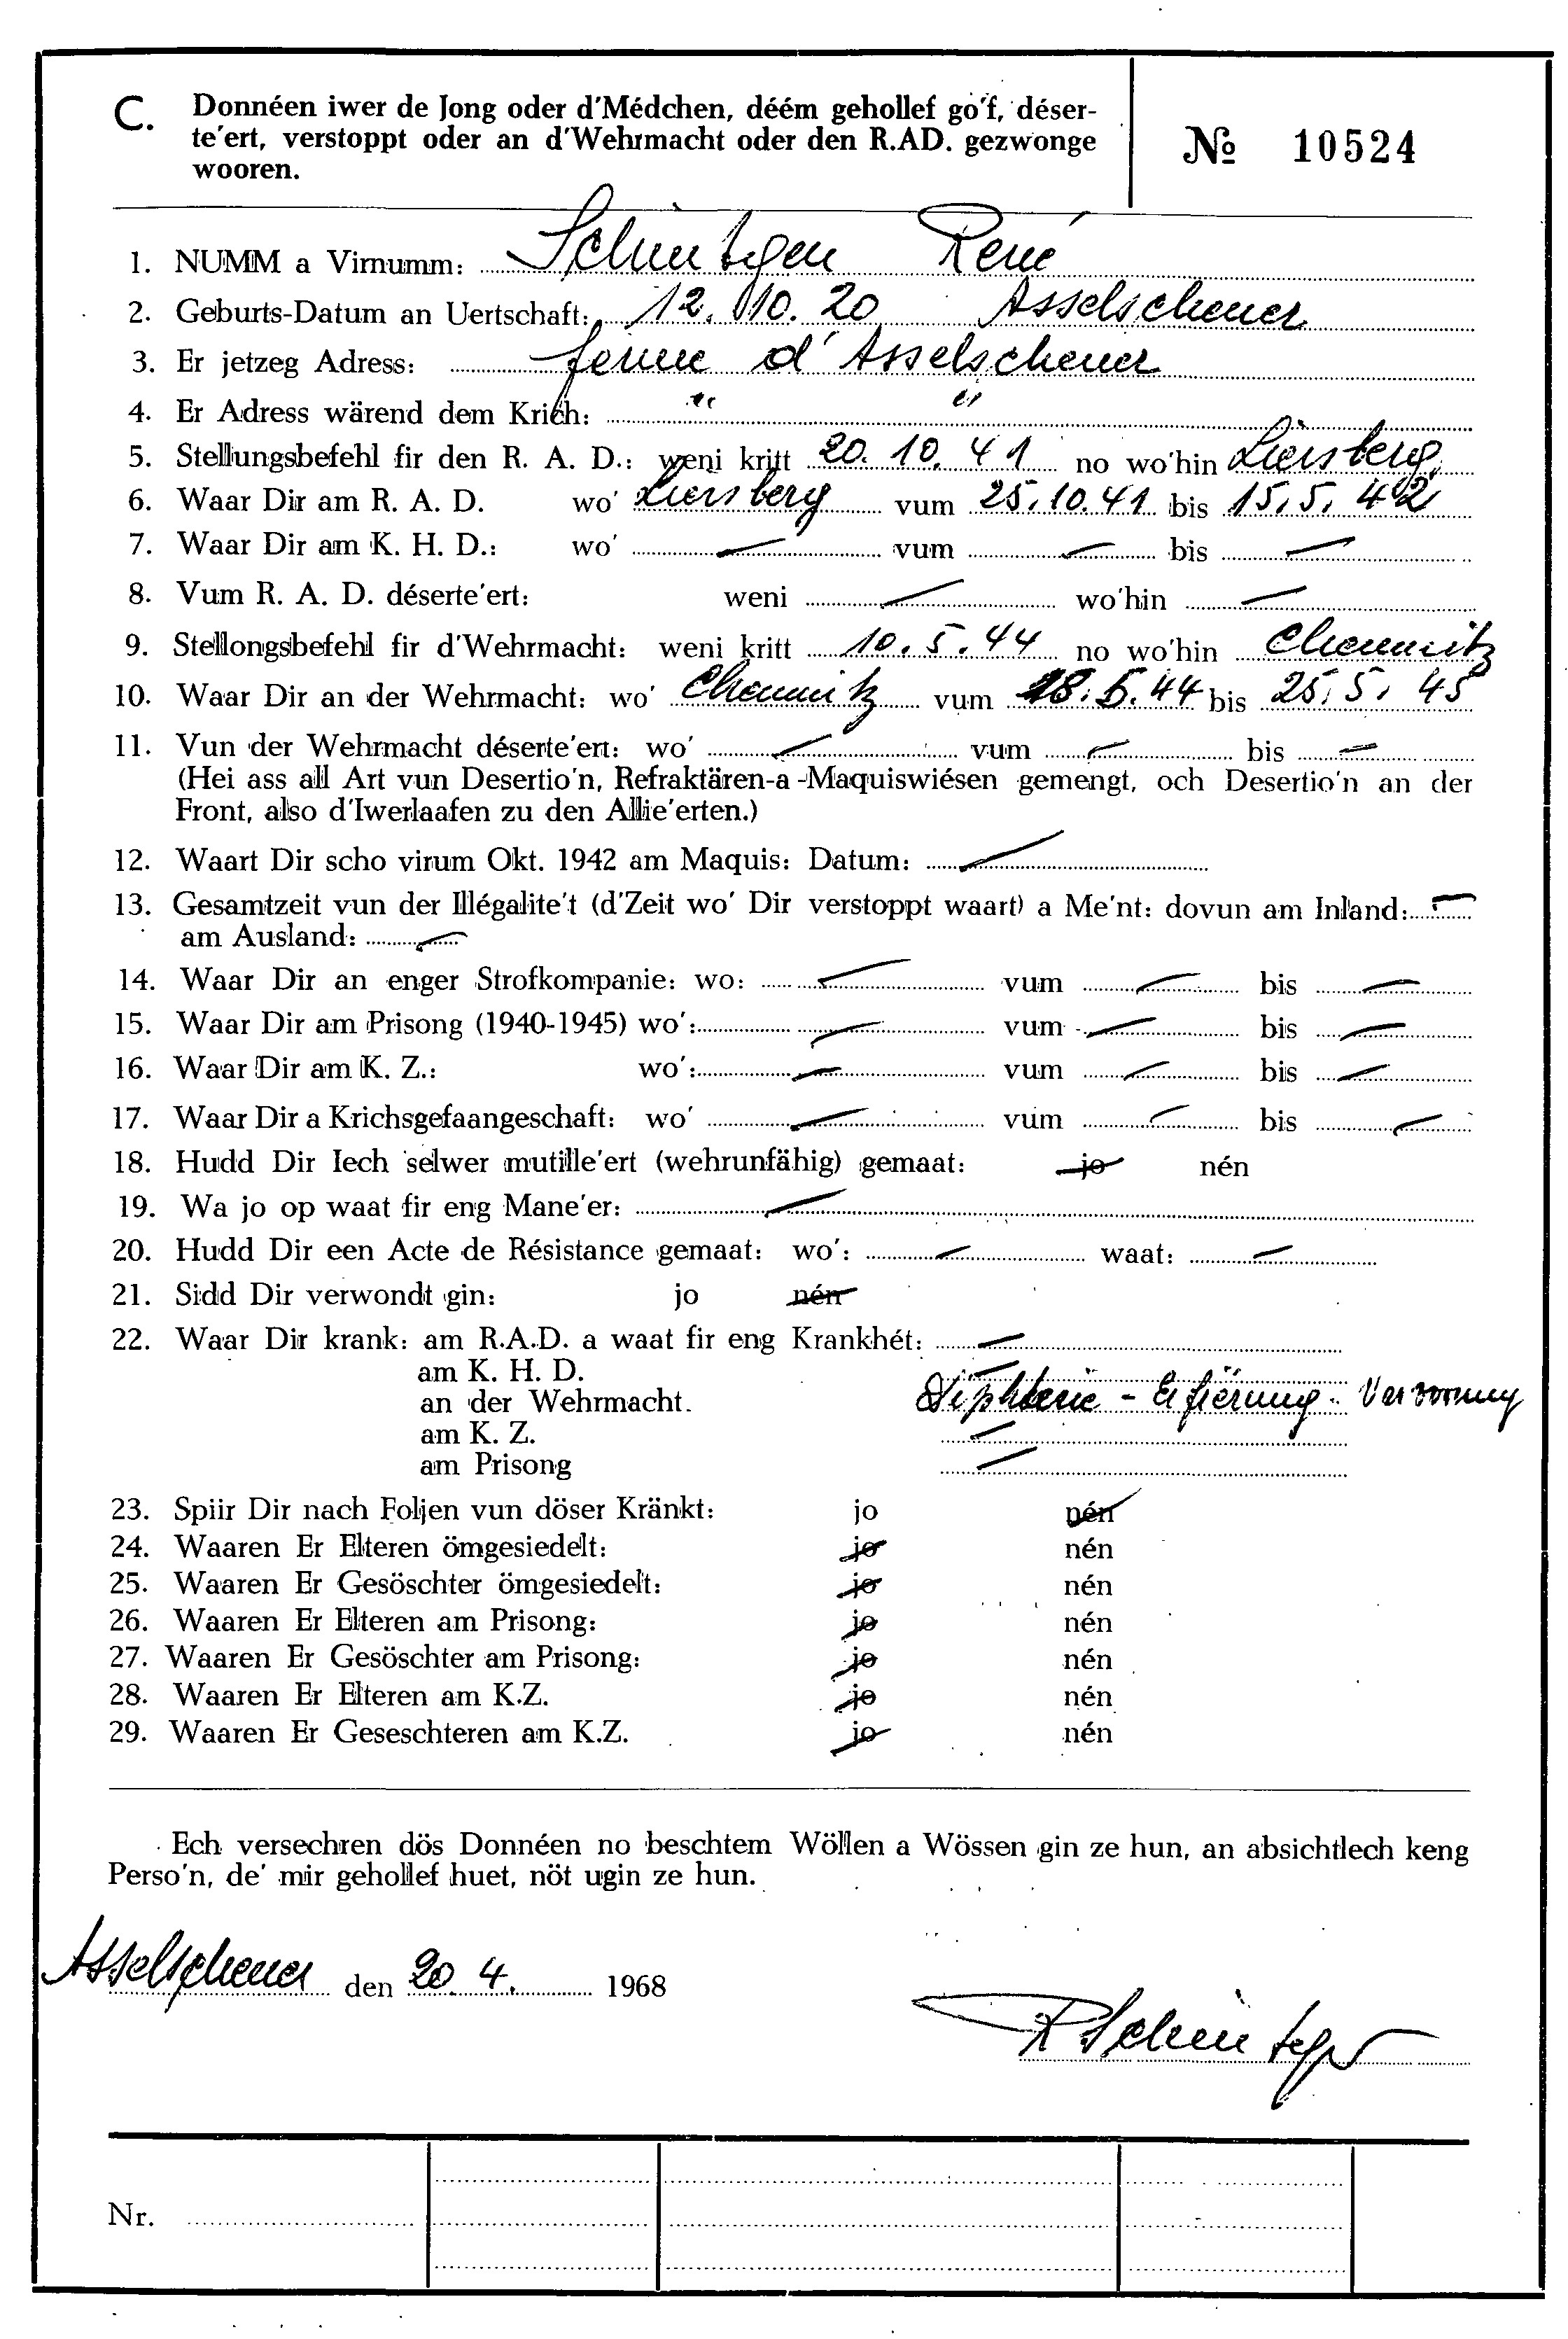 C. Donnéen iwer de Jong oder d'Médchen, déém gehollef go'f, déser-
te'ert, verstoppt oder an d'Wehrmacht oder den R.AD. gezwonge
wooren.
№ 10524
1. NUMM a Virnumm: Schintgen René
2. Geburts-Datum an Uertschaft: 12. 10. 20 Asselscheuer
3. Er jetzeg Adress: ferme d'Asselscheuer
4. Er Adress wärend dem Krich: " "
5. Stellungsbefehl fir den R. A. D.: weni kritt 20. 10. 41 no wo'hin Liersberg
6. Waar Dir am R. A. D. wo' Liersberg vum 25. 10. 41 bis 15. 5. 42
7. Waar Dir am K. H. D.: wo' — vum — bis —
8. Vum R. A. D. déserte'ert: weni — wo'hin —
9. Stellongsbefehl fir d'Wehrmacht: weni kritt 10. 5. 44 no wo'hin Chemnitz
10. Waar Dir an der Wehrmacht: wo' Chemnitz vum 18. 5. 44 bis 25. 5. 45
11. Vun der Wehrmacht déserte'ert: wo' — vum — bis —
(Hei ass all Art vun Desertio'n, Refraktären-a-Maquiswiésen gemengt, och Desertio'n an der
Front, also d'Iwerlaafen zu den Allie'erten.)
12. Waart Dir scho virum Okt. 1942 am Maquis: Datum: —
13. Gesamtzeit vun der Illégalite't (d'Zeit wo' Dir verstoppt waart) a Me'nt: dovun am Inland: —
am Ausland: —
14. Waar Dir an enger Strofkompanie: wo: — vum — bis —
15. Waar Dir am Prisong (1940-1945) wo': — vum — bis —
16. Waar Dir am K. Z.: wo': — vum — bis —
17. Waar Dir a Krichsgefaangeschaft: wo' — vum — bis —
18. Hudd Dir Iech selwer mutille'ert (wehrunfähig) gemaat: jo nén
19. Wa jo op waat fir eng Mane'er: —
20. Hudd Dir een Acte de Résistance gemaat: wo': — waat: —
21. Sidd Dir verwondt gin: jo nén
22. Waar Dir krank: am R.A.D. a waat fir eng Krankhét: —
am K. H. D. —
an der Wehrmacht. Diphterie - Erfierung -
am K. Z. —
am Prisong —
23. Spiir Dir nach Foljen vun döser Kränkt: jo nén
24. Waaren Er Elteren ömgesiedelt: jo nén
25. Waaren Er Gesöschter ömgesiedelt: jo nén
26. Waaren Er Elteren am Prisong: jo nén
27. Waaren Er Gesöschter am Prisong: jo nén
28. Waaren Er Elteren am K.Z. jo nén
29. Waaren Er Geseschteren am K.Z. jo nén
Ech versechren dös Donnéen no beschtem Wöllen a Wössen gin ze hun, an absichtlech keng
Perso'n, de' mir gehollef huet, nöt ugin ze hun.
Asselscheuer den 20. 4. 1968
R Schintgen
Nr.